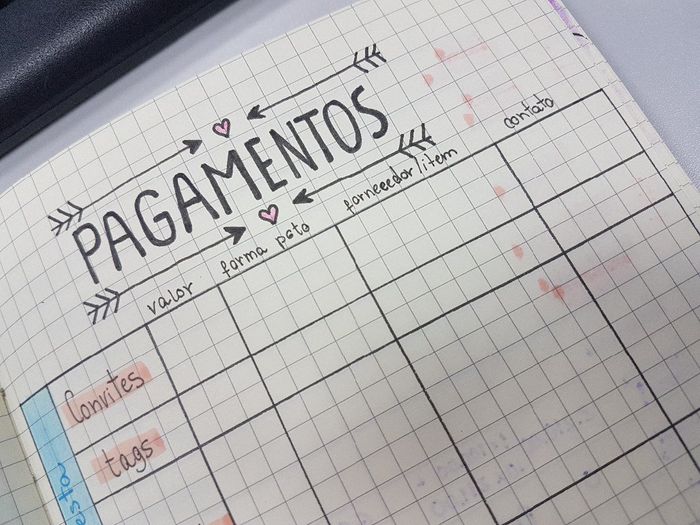 PAGAMENTOS
valor forma pgto fornecedor/item contato
Convites
tags